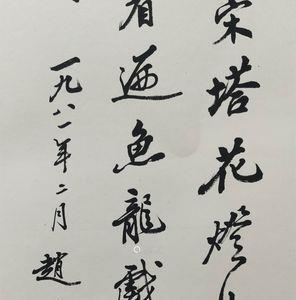 宋塔花燈
看遍魚龍戲
一九八一年二月趙